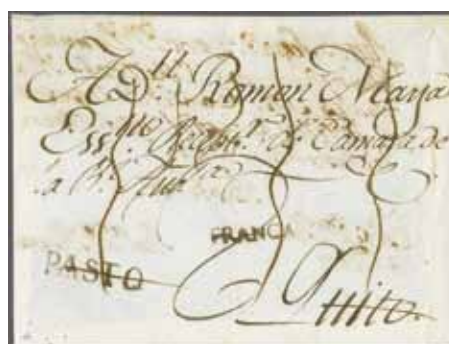 A D.ⁿ Ramon Maya
Ess.ⁿᵒ Recep.ʳ de Camara de
la R.ˡ Aud.ª
FRANCA
PASTO
Quito.